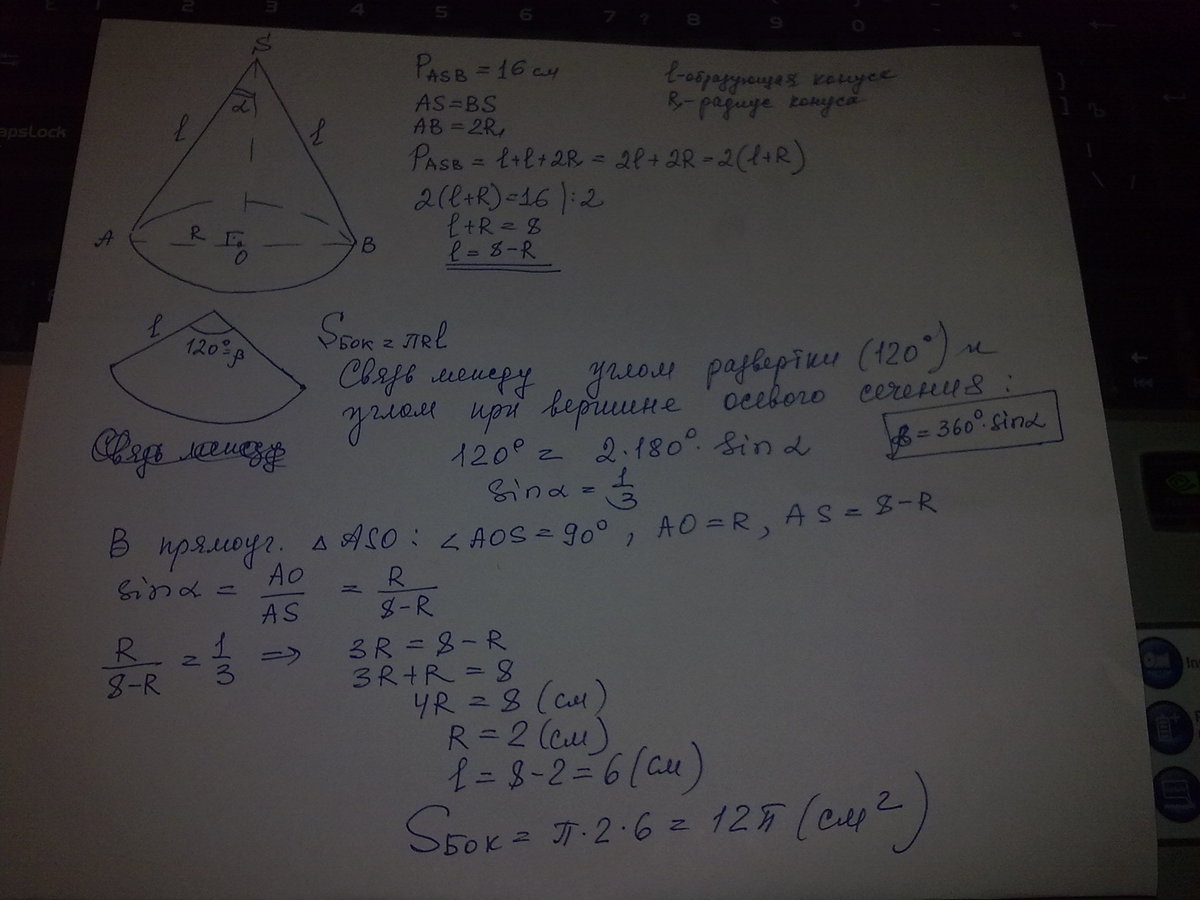 S
α
l
l
A
R
O
B
P ASB = 16 см
AS = BS
AB = 2R
P ASB = l+l+2R = 2l+2R = 2(l+R)
2(l+R)=16 |:2
l+R = 8
l = 8-R
l-образующая конуса
R-радиус конуса
l
120°=β
Sбок = πRl
Связь между углом развертки (120°) и
углом при вершине осевого сечения:
Связь между
120° = 2·180°·sinα
β=360°·sinα
sinα = 1/3
В прямоуг. △ ASO: ∠AOS=90°, AO=R, AS=8-R
sinα = AO/AS = R/8-R
R/8-R = 1/3 => 3R = 8-R
3R+R = 8
4R = 8 (см)
R = 2 (см)
l = 8-2 = 6 (см)
Sбок = π·2·6 = 12π (см²)
capsLock
2 3 4 5 6 7 ? 8 9 0